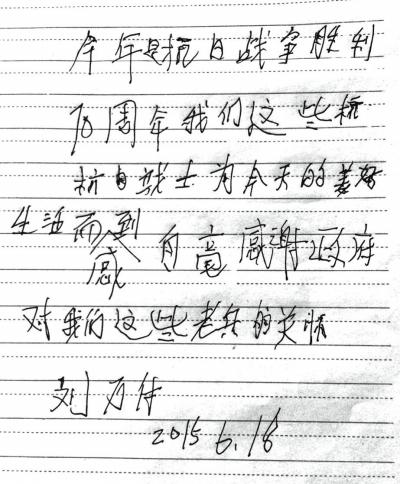 今年是抗日战争胜利
70周年我们这些抗
抗日战士为今天的美好
生活而到感自豪感谢政府
对我们这些老兵的关怀
刘万仕
2015 6.18